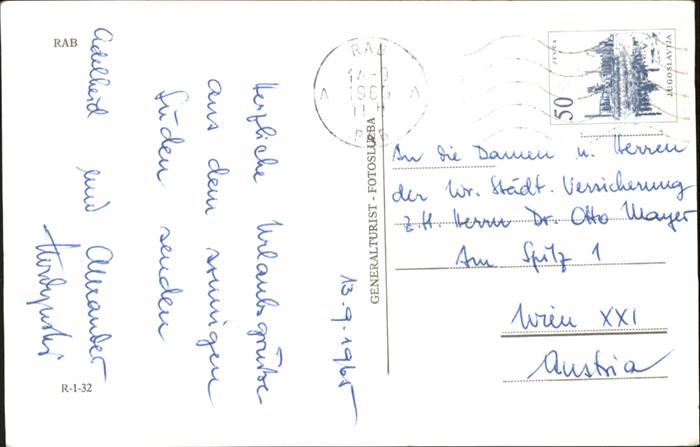 RAB
Herzliche Urlaubsgrüße
aus dem sonnigen
Süden senden
Adelheid und Alexander
13.9.1965
R-1-32
GENERALTURIST - FOTOSLUŽBA
RAB
ZENICA
50
JUGOSLAVIJA
An die Damen u. Herren
der Wr. Städt. Versicherung
z.H. Herrn Dr. Otto Mayer
Am Spitz 1
Wien XXI
Austria